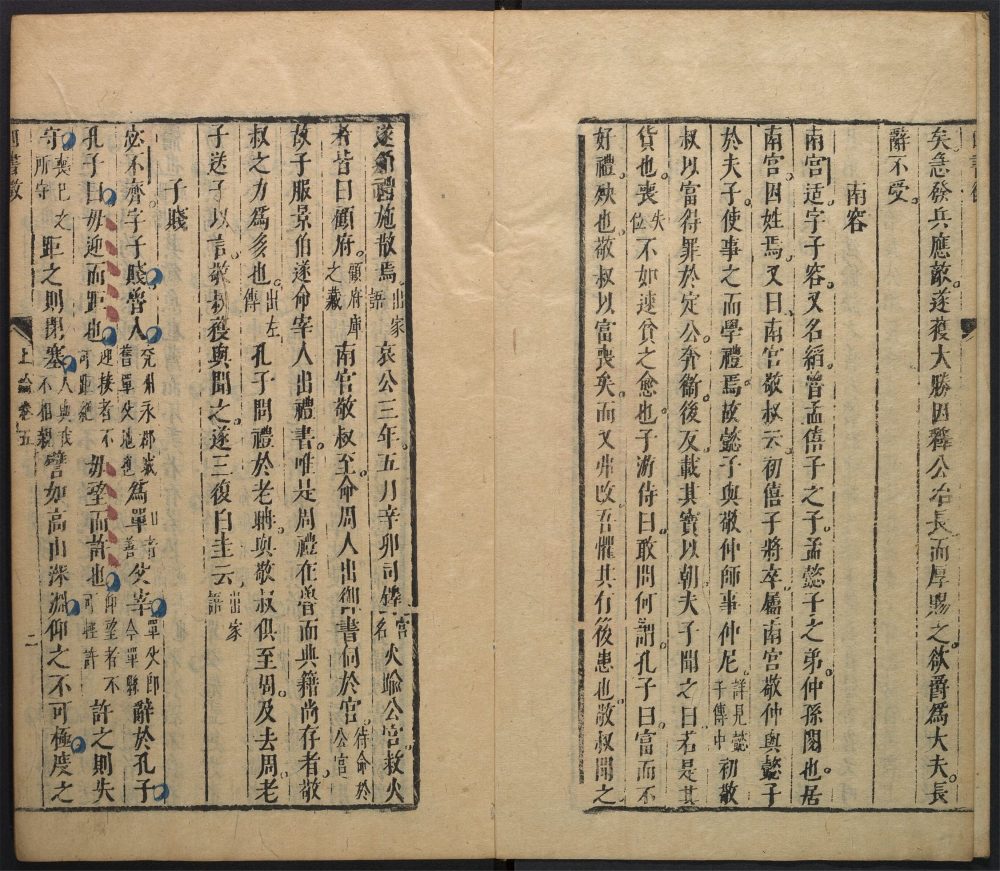 矣急發兵應敵遂獲大勝因釋公冶長而厚賜之欲爵爲大夫長
辭不受
南容
南宮适字子容又名縚魯孟僖子之子孟懿子之弟仲孫閱也居
南宮因姓焉又曰南宮敬叔云初僖子將卒屬南宮敬仲與懿子
於夫子使事之而學禮焉故懿子與敬仲師事仲尼詳見懿子傳中初敬
叔以富得罪於定公奔衛後反載其寶以朝夫子聞之曰若是其
貨也喪失位不如速貧之愈也子游侍曰敢問何謂孔子曰富而不
好禮殃也敬叔以富喪矣而又弗改吾懼其有後患也敬叔聞之
遂循禮施散焉出家語哀公三年五月辛卯司鐸宮名火踰公宮救火
者皆曰顧府顧府庫之藏南宮敬叔至命周人出御書伺於宮待命於公宮
故子服景伯遂命宰人出禮書唯是周禮在魯而典籍尚存者敬
叔之力爲多也出左傳孔子問禮於老聃與敬叔俱至周及去周老
子送子以言敬叔獲與聞之遂三復白圭云出家語
子賤
宓不齊字子賤魯人兗州永郡城口者舊單父地也爲單善父宰單父即今單縣辭於孔子
孔子曰毋迎而距也迎接者不可距絕毋望而許也仰望者不可輕許許之則失
守喪已之所守距之則閉塞人與我不相親譬如高山深淵仰之不可極度之
四書教
上論卷五
二